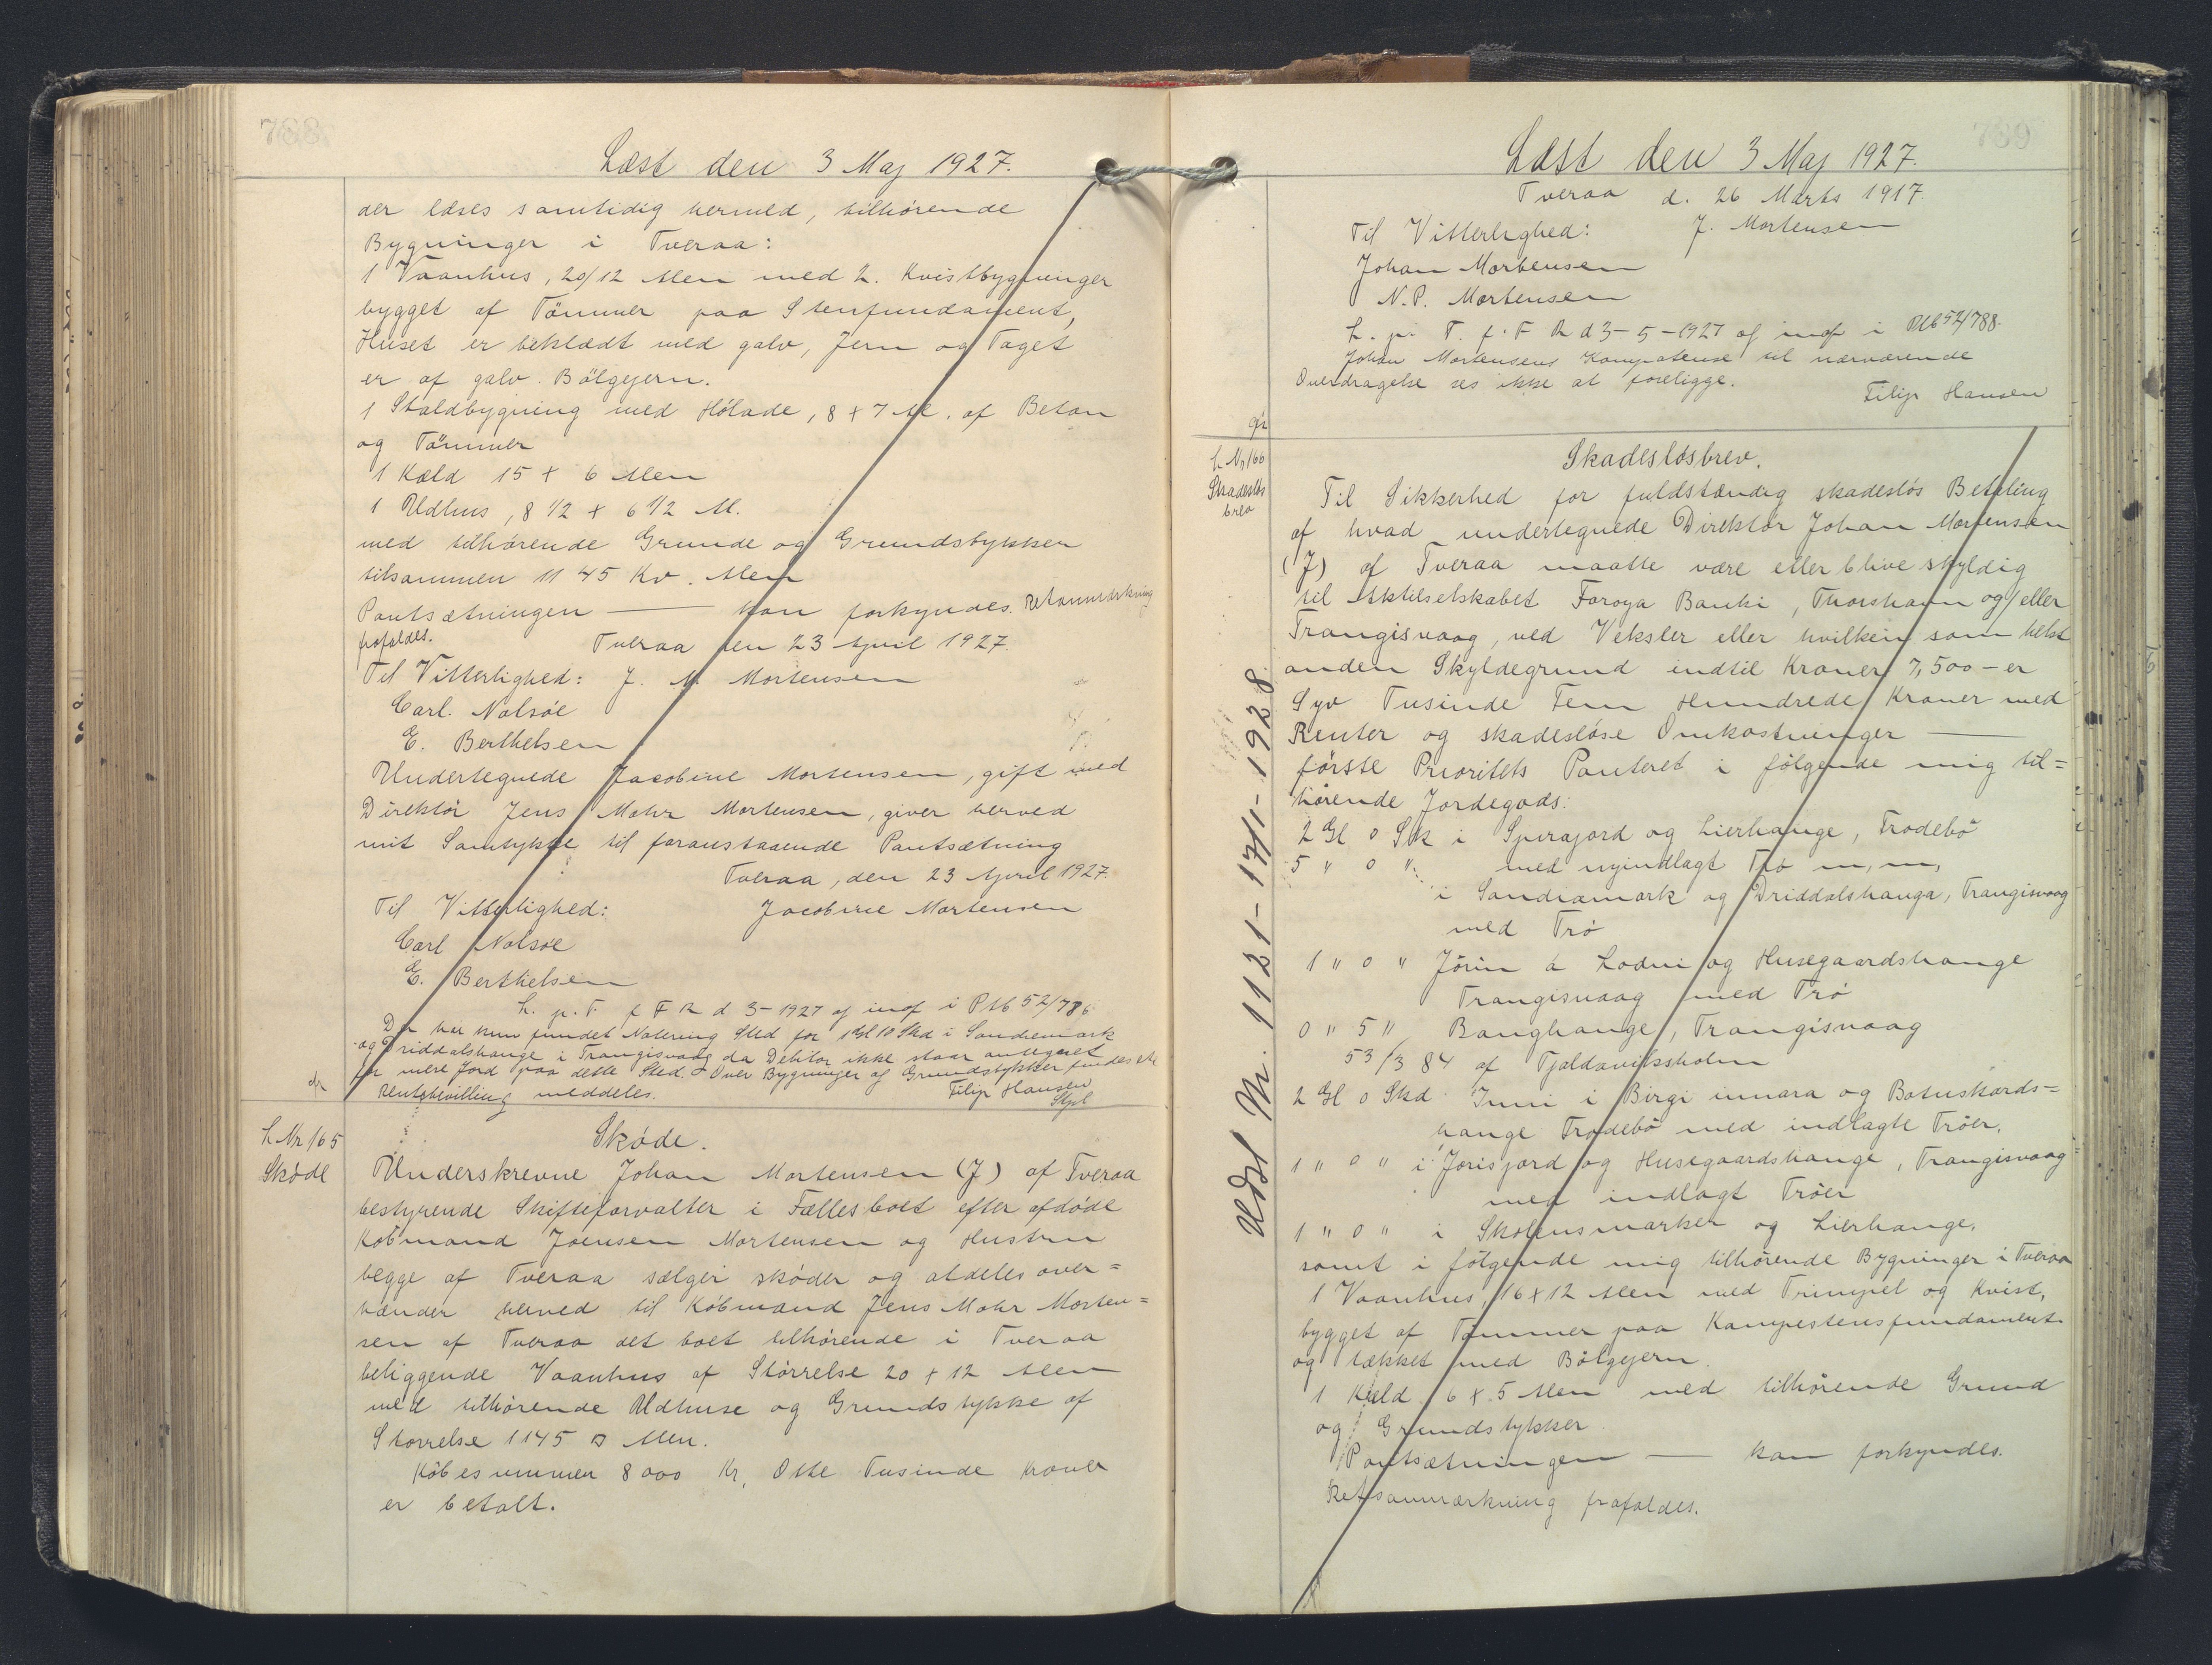 788
Læst den 3 Maj 1927.
der læses samtidig hermed, tilhörende
Bygninger i Tveraa:
1 Vaanhus, 20/12 Alen med 2. Kvistbygninger
bygget af Tömmer paa Stenfundament,
Huset er beklædt med galv, Jern og Taget
er af galv. Bölgejern.
1 Staldbygning med Hölade, 8 x 7 Al. af Beton
og Tömmer
1 Kæld 15 x 6 Alen
1 Udhus, 8 1/2 x 6 1/2 Al.
med tilhörende Grunde og Grundstykker
tilsammen 11 45 Kv. Alen
Pantsætningen — kan forkyndes. Retanmærkning
frafaldes.
Tveraa den 23 April 1927.
Til Vitterlighed: J. M. Mortensen
Carl. Nolsöe
E. Berthelsen
Undertegnede Jacobine Mortensen, gift med
Direktör Jens Mohr Mortensen, giver herved
mit Samtykke til foranstaaende Pantsætning
Tveraa, den 23 April 1927.
Til Vitterlighed: Jacobine Mortensen
Carl Nolsöe
E. Berthelsen
L. p. T. f F R d 3-1927 og indf i PM 52/786
Der har kun fundet Notering Sted for 1 Gl 10 Skd i Sandremark
og Driddalshange i Trangisvaag da Debitor ikke staar antegnet
for mere Jord paa dette Sted. Over Bygninger og Grundstykker findes
Rentebevilling meddeles. Filip Hansen
L Nr 165
Sköde
Sköde.
Underskrevne Johan Mortensen (J) af Tveraa
bestyrende Skifteforvalter i Fællesboet efter afdöde
Köbmand Joensen Mortensen og Hustru
begge af Tveraa sælger sköder og aldeles over=
hænder herved til Köbmand Jens Mohr Morten=
sen af Tveraa det boet tilhörende i Tveraa
beliggende Vaanhus af Störrelse 20 x 12 Alen
med tilhörende Udhuse og Grundstykke af
Störrelse 1145 □ Alen.
Köbesummen 8000 Kr, Otte Tusinde Kroner
er betalt.
789
Læst den 3 Maj 1927.
Tveraa d. 26 Marts 1917.
Til Vitterlighed: J. Mortensen
Johan Mortensen
N.P. Mortensen
L. p. T. f. F R d 3-5-1927 og indf i PM 52/788.
Johan Mortensens Kompetense til nærværende
Overdragelse ses ikke at foreligge.
Filip Hansen
L Nr 166
Skadeslös
brev
Skadeslösbrev.
Til Sikkerhed for fuldstændig skadeslös Betaling
af hvad undertegnede Direktör Johan Mortensen
(J) af Tveraa maatte være eller blive skyldig
til Aktieselskabet Föroya Banki, Thorshavn og/eller
Trangisvaag, ved Veksler eller hvilken som helst
anden Skyldegrund indtil Kroner 7,500 - er
Syv Tusinde Fem Hundrede Kroner med
Renter og skadeslöse Omkostninger —
förste Prioritets Panteret i fölgende mig til=
hörende Jordegods:
2 Gl 0 Sk i Spirajord og Lierhange, Trodebö
5 " 0 " med nyindlagt Trö m, m,
i Sandramark og Driddalshauga, Trangisvaag
med Trö
1 " 0 " Jörin á Lodni og Husegaardshange
Trangisvaag med Trö
0 " 5 " Banghange, Trangisvaag
53/384 af Tjaldavikssholm
2 Gl 0 Skd Inni i Birgi innara og Botnskards=
hange Trodebö med indlagte Tröer.
1 " 0 " i Jorisjord og Husegaardshange, Trangisvaag
med indlagt Tröer
1 " 0 " i Skolensmarker og Lierhange.
samt i fölgende mig tilhörende Bygninger i Tveraa
1 Vaanhus, 16 x 12 Alen med Trimpel og Kvist,
bygget af Tömmer paa Kampestensfundament
og tækket med Bölgejern
1 Kæld 6 x 5 Alen med tilhörende Grund
og Grundstykker
Pantsætningen — kan forkyndes.
Retsanmærkning frafaldes.
Udsl Nr. 1121-17/1-1928.